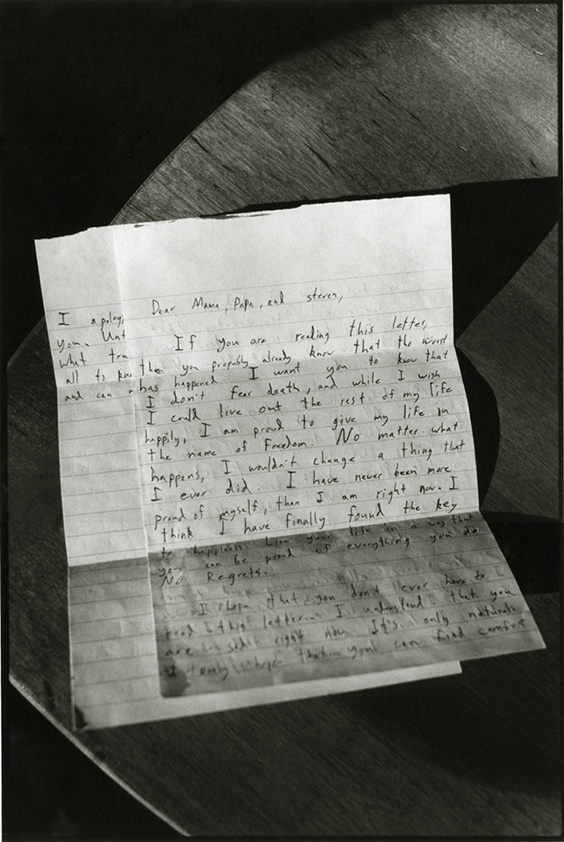 Dear Mama, Papa, and steven,
If you are reading this letter,
then you propably already know that the worst
has happened. I want you to know that
I don't fear death, and while I wish
I could live out the rest of my life
happily, I am proud to give my life in
the name of Freedom. No matter what
happens, I wouldn't change a thing that
I ever did. I have never been more
proud of myself, than I am right now. I
think I have finally found the key
to happiness. Live your life in a way that
you can be proud of everything you do.
No Regrets.
I hope that you don't ever have to
read this letter. I understand that you
are sad right now. It's only natural.
I only hope that you can find comfort
I apolog
you. Unt
what tru
all to kno
and can